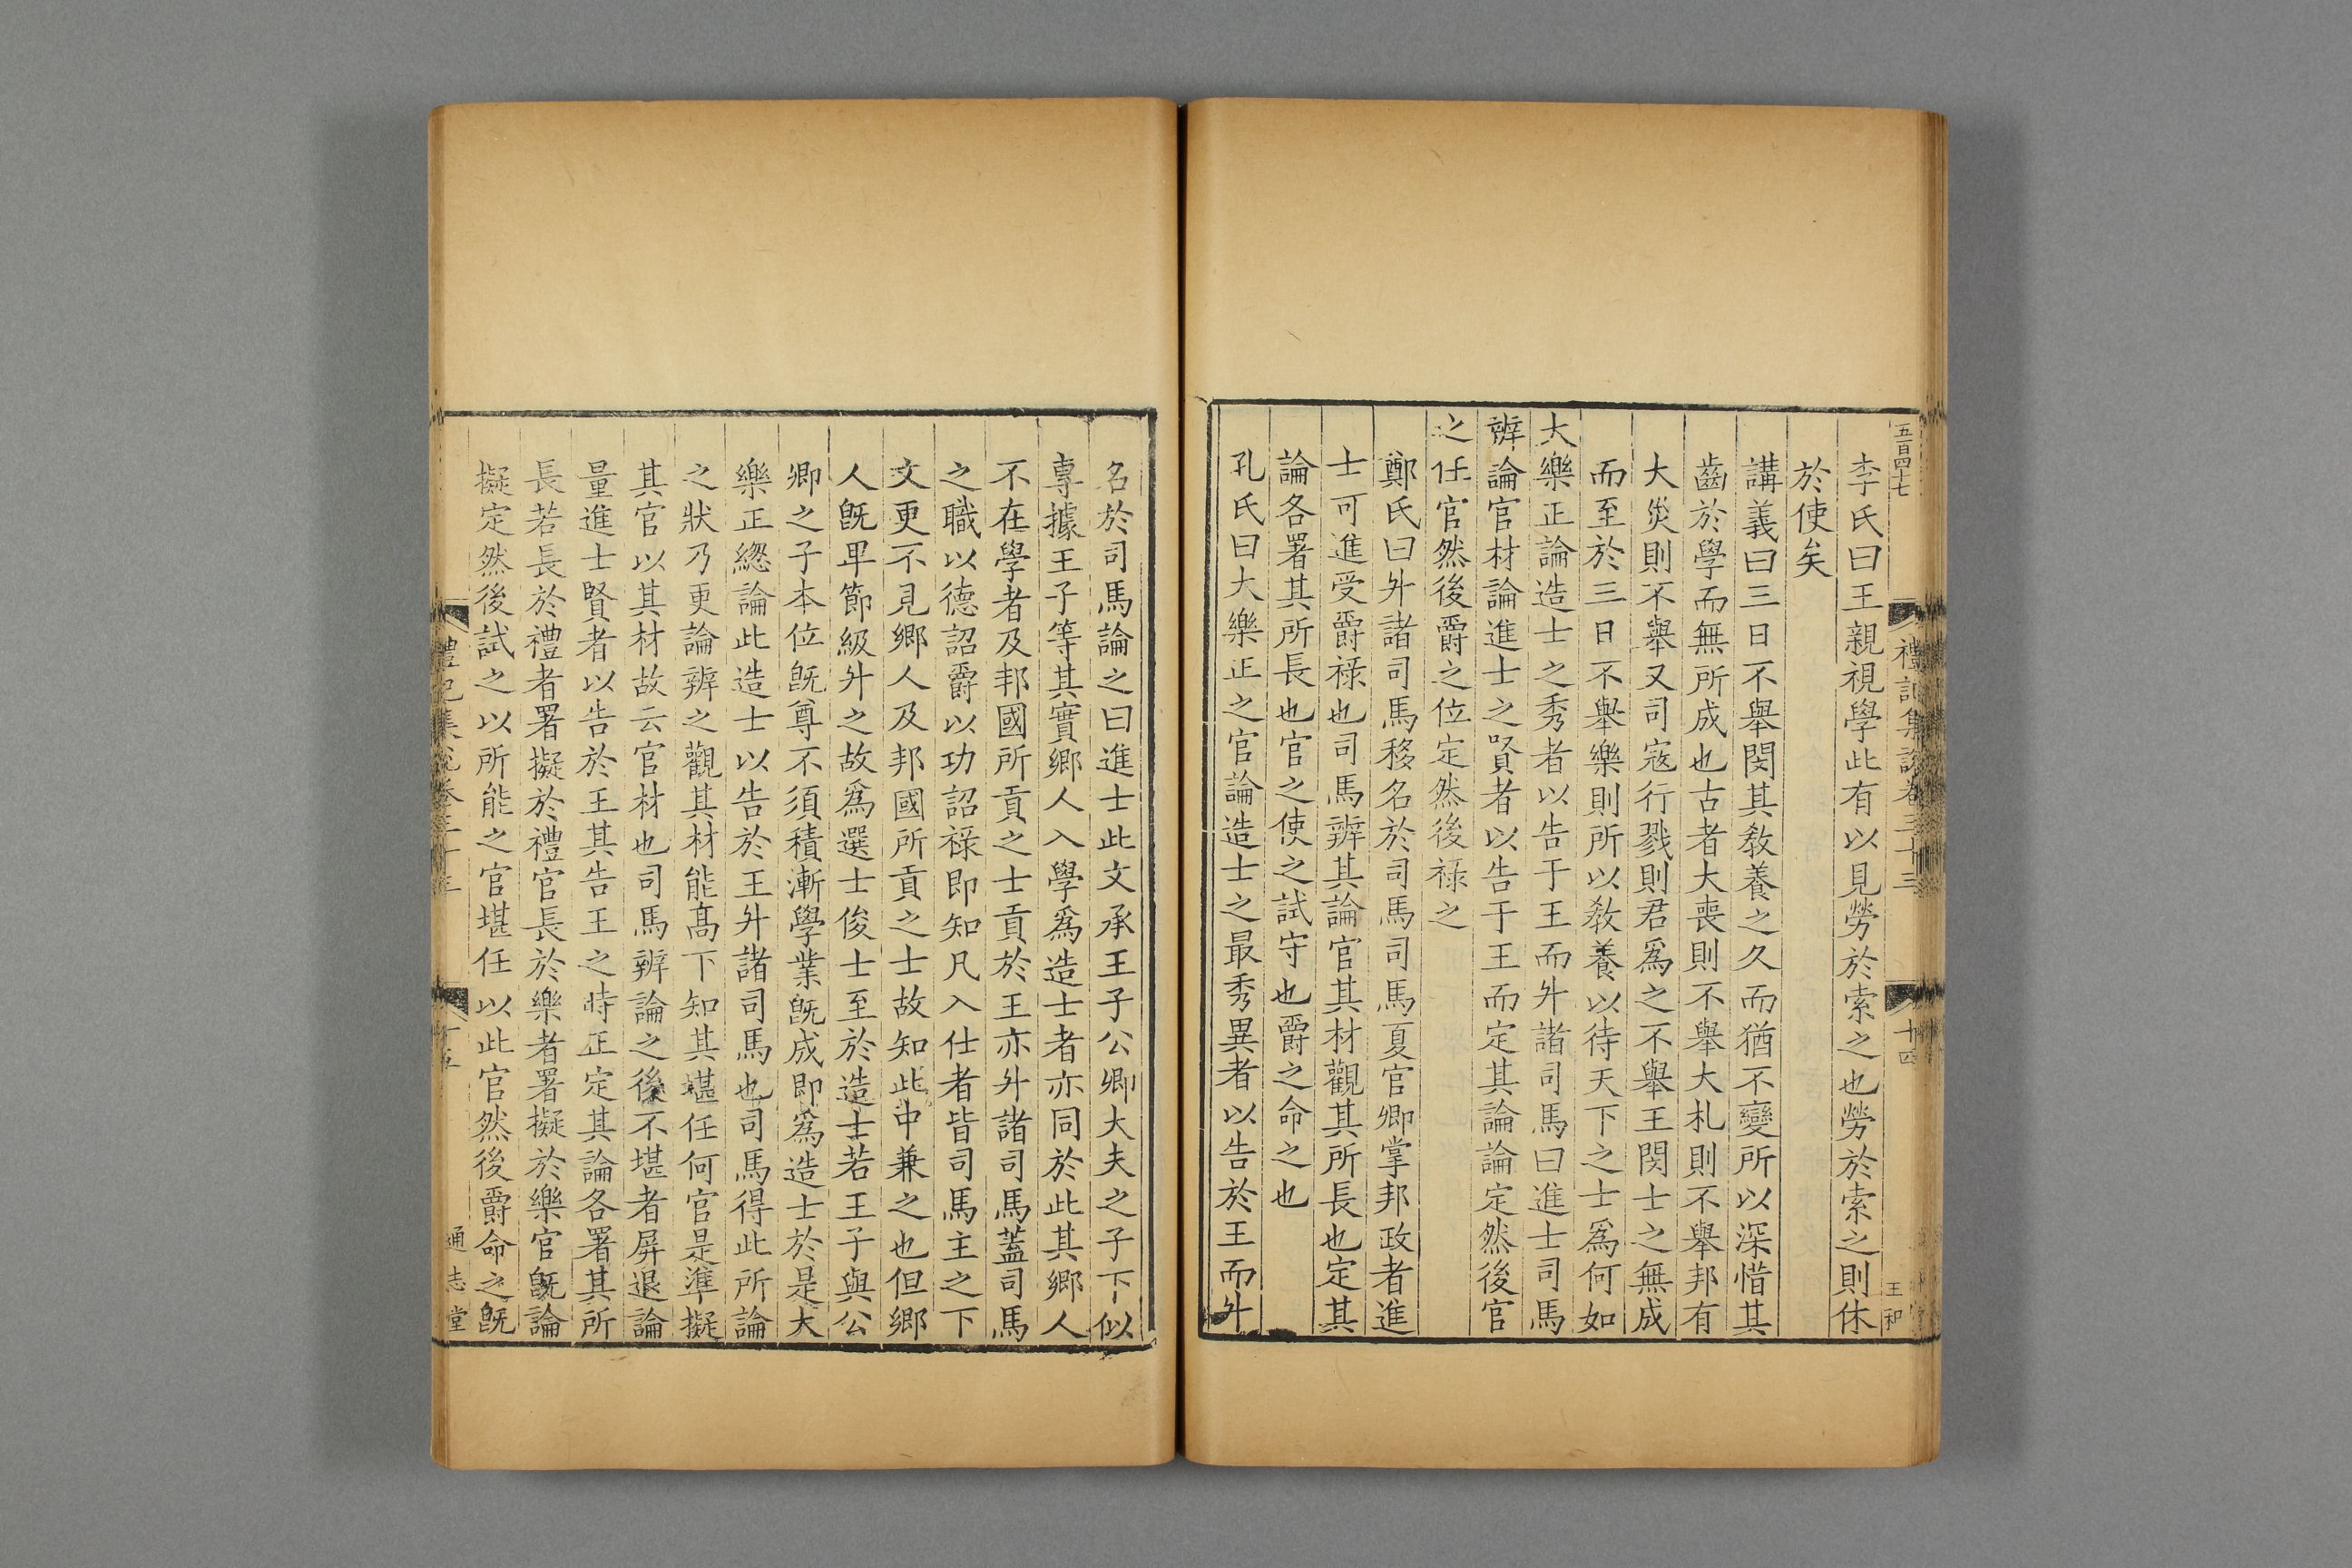 五百四十七
禮記集說卷三十三
十四
王和
李氏曰王親視學此有以見勞於索之也勞於索之則休
於使矣
講義曰三日不舉閔其敎養之久而猶不變所以深惜其
齒於學而無所成也古者大喪則不舉大札則不舉邦有
大烖則不舉又司宼行戮則君爲之不舉王閔士之無成
而至於三日不舉樂則所以敎養以待天下之士爲何如
大樂正論造士之秀者以告于王而升諸司馬曰進士司馬
辨論官材論進士之賢者以告于王而定其論論定然後官
之任官然後爵之位定然後祿之
鄭氏曰升諸司馬移名於司馬司馬夏官卿掌邦政者進
士可進受爵祿也司馬辨其論官其材觀其所長也定其
論各署其所長也官之使之試守也爵之命之也
孔氏曰大樂正之官論造士之最秀異者以告於王而升
名於司馬論之曰進士此文承王子公卿大夫之子下似
專據王子等其實鄉人入學爲造士者亦同於此其鄉人
不在學者及邦國所貢之士貢於王亦升諸司馬蓋司馬
之職以德詔爵以功詔祿即知凡入仕者皆司馬主之下
文更不見鄉人及邦國所貢之士故知此中兼之也但鄉
人旣卑節級升之故爲選士俊士至於造士若王子與公
卿之子本位旣尊不須積漸學業旣成即爲造士於是大
樂正緫論此造士以告於王升諸司馬也司馬得此所論
之狀乃更論辨之觀其材能高下知其堪任何官是準擬
其官以其材故云官材也司馬辨論之後不堪者屏退論
量進士賢者以告於王其告王之時正定其論各署其所
長若長於禮者署擬於禮官長於樂者署擬於樂官旣論
擬定然後試之以所能之官堪任以此官然後爵命之旣
禮記集說卷三十三
十五
通志堂